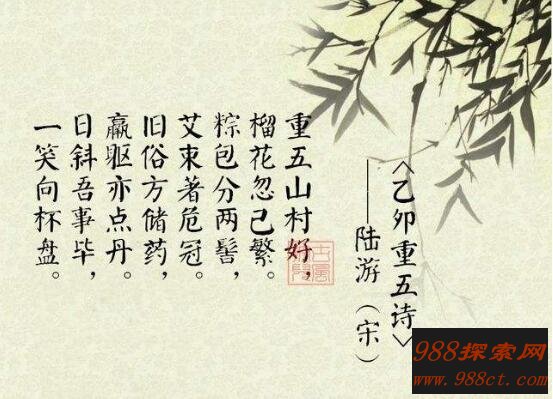 〈乙卯重五诗〉
——陆游（宋）
重五山村好，
榴花忽已繁。
粽包分两髻，
艾束著危冠。
旧俗方储药，
羸躯亦点丹。
日斜吾事毕，
一笑向杯盘。
988探索网
www.988ct.com